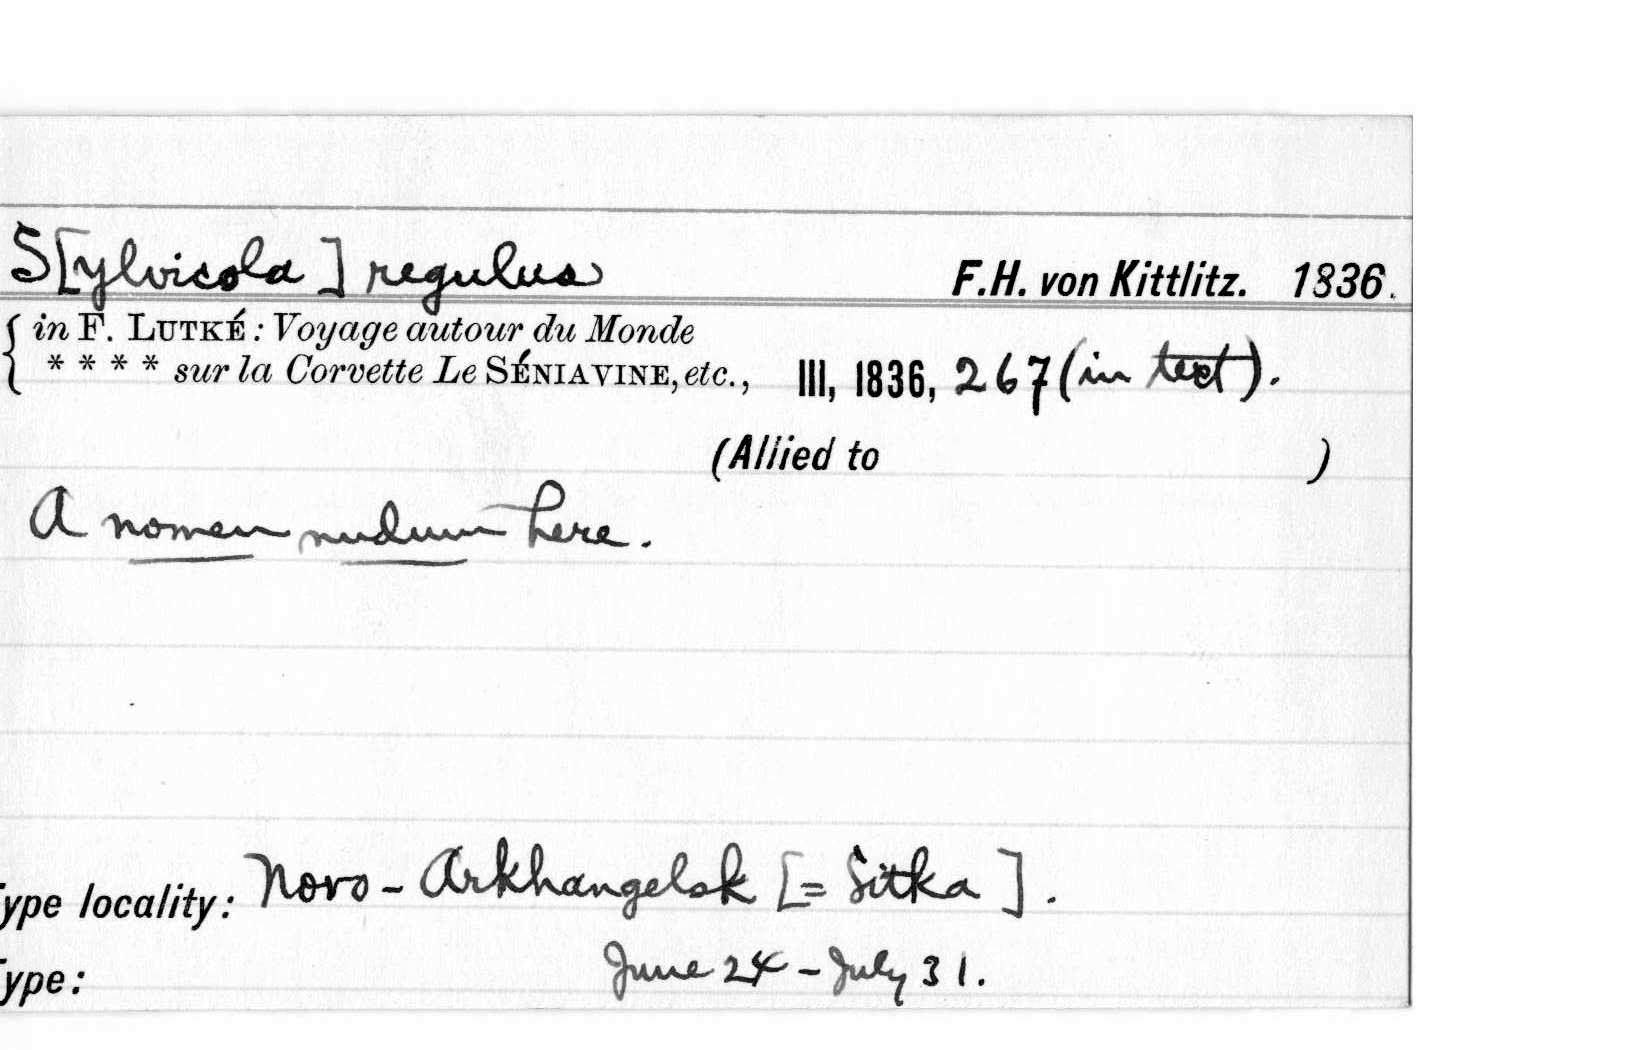 S[ylvicola] regulus F.H. von Kittlitz. 1836.
in F. LUTKÉ: Voyage autour du Monde
* * * * sur la Corvette Le SÉNIAVINE, etc., III, 1836, 267 (in text).
(Allied to )
A nomen nudum here.
ype locality: Novo-Arkhangelsk [= Sitka].
June 24 - July 31.
ype: